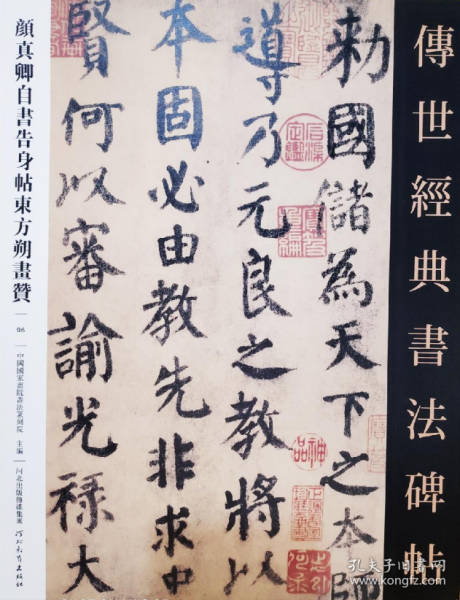 傳世經典書法碑帖
勅國儲為天下之本師
導乃元良之教將以
本固必由教先非求中
賢何以審諭光祿大
顏真卿自書告身帖東方朔畫贊
96
中國國家畫院書法篆刻院 主編
河北出版傳媒集團
河北教育出版社
神品
孔夫子旧书网
www.kongfz.com